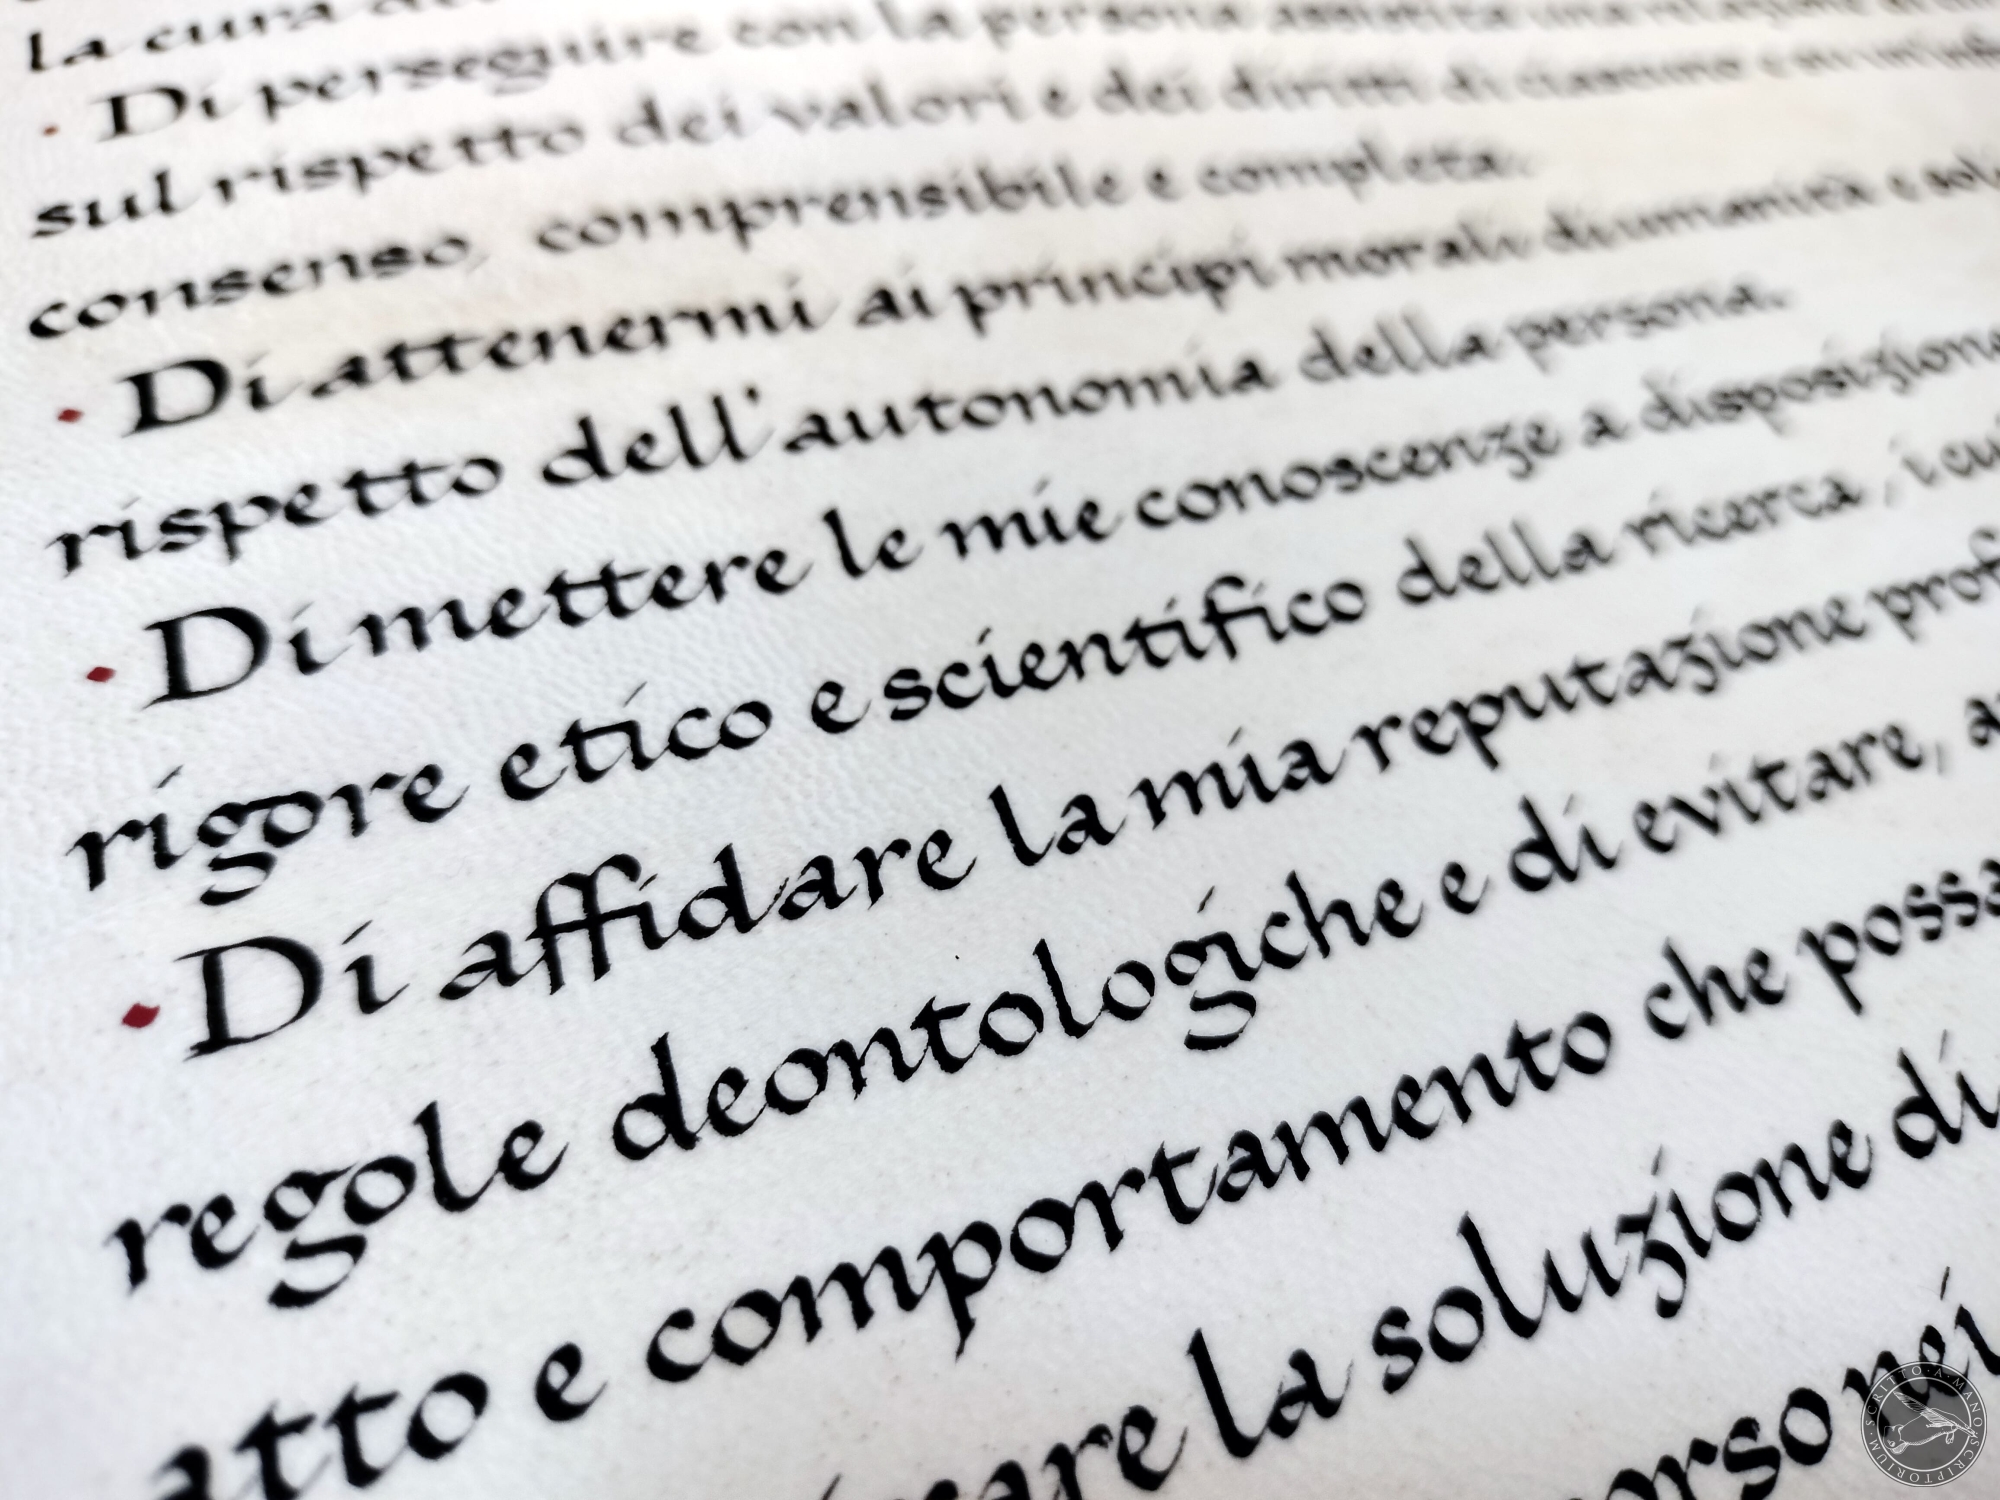 la cura
· Di perseguire con la persona assistita una relazione
sul rispetto dei valori e dei diritti di ciascuno e un'info
consenso, comprensibile e completa.
· Di attenermi ai principi morali di umanità e sol
rispetto dell'autonomia della persona.
· Di mettere le mie conoscenze a disposizione
rigore etico e scientifico della ricerca, i cui
· Di affidare la mia reputazione prof
regole deontologiche e di evitare, a
atto e comportamento che possa
care la soluzione di
orso nei
SCRITTO·A·MANO·SCRIPTORIUM·